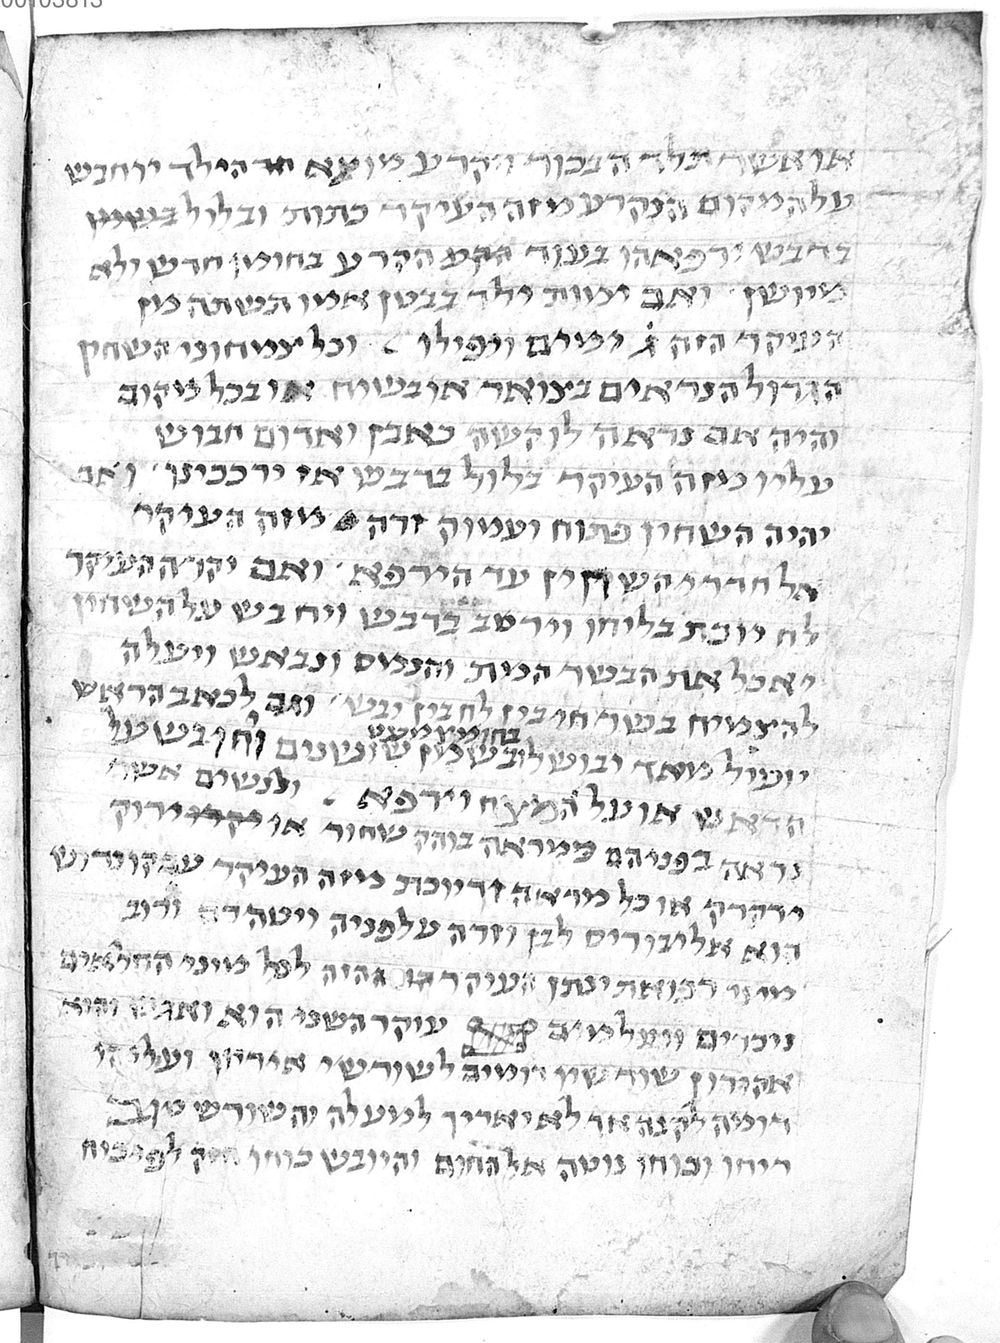 או אשר תלד הבכור הקרע מוצא הילד ויחבש
על המקום הנקרע מזה העיקר כתות ובלול בשמן
בדבש ירפאהו בעוד הקרע בחומו חדש ולא
מיושן ואם ימות ילד בבטן אמו תשתה מן
העיקר הזה ג ימים ויפילו וכל צמחוני השחין
הגדול הנראים בצואר או בשוח או בכל מקום
והיה אם נראה לו קשה כאבן ואדום חבוש
עליו מזה העיקר בלול בדבש אז ירככינו ואם
יהיה השחין פתוח ועמוק זרה מזה העיקר
אל חדרי השחין עד הירפא ואם יקרה העיקר
לח יוכת בליחו וירטב בדבש ויחבש על השחין
יאכל את הבשר המת והנמס ונבאש ויעלה
להצמיח בשר חי בין לח בין יבש וגם לכאב הראש
בחומץ מעט
יועיל מאד יבוש לוב שמן שושנים ולחובש על
הראש או על המצח וירפא ולנשים אשר
נראה בפניהם ממראה בוהק שחור או ירוק
ירקרק או כל מראה זר יוכת מזה העיקר עם קונדיש
הוא אליבורוס לבן וזרה על פניה ויטהרה ורוב
מיני רפואת ינתן העיקר הזה לכל מיני החלאים
ניכרים ונעלמים עיקר השני הוא ואגש והוא
אקירון שורשיו דומים לשורשי איריון ועליהו
דומה לקנה אך לא יאריך למעלה והשורש טוב
ריחו וכוחו נוטה אל החום והיובש כוחו חזק לפוכיח